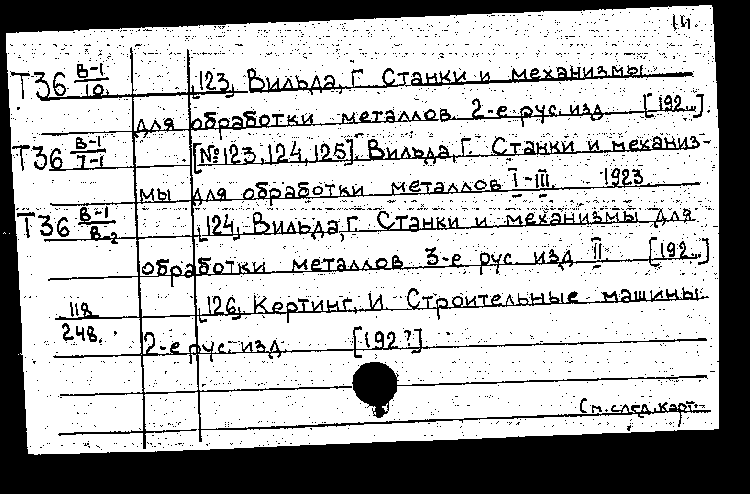 14.
Т36 В-1/10 [123] Вильда, Г. Станки и механизмы
для обработки металлов 2-е рус. изд. [192...].
Т36 В-1/7-1 [№123, 124, 125]. Вильда, Г. Станки и механиз-
мы для обработки металлов I-III. 1923.
Т36 В-1/В-2 [124] Вильда, Г. Станки и механизмы для
обработки металлов 3-е рус. изд. II. [192...]
118/248. [126] Кертинг, И. Строительные машины.
2-е рус. изд. [192?]
См. след. карт.